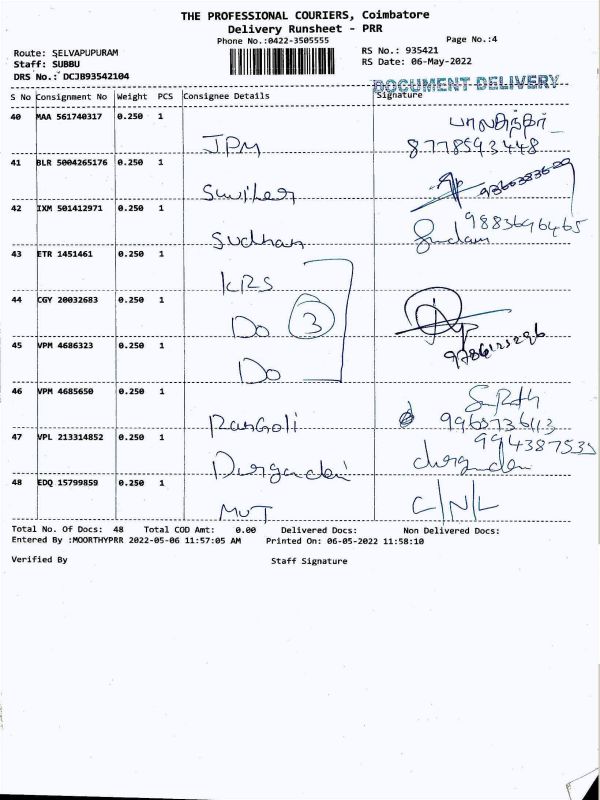 THE PROFESSIONAL COURIERS, Coimbatore
Delivery Runsheet - PRR
Phone No.:0422-3505555
Page No.:4
Route: SELVAPUPURAM
RS No.: 935421
Staff: SUBBU
RS Date: 06-May-2022
DRS No.: DCJB93542104
DOCUMENT DELIVERY
S No Consignment No Weight PCS Consignee Details Signature
40 MAA 561740317 0.250 1
JPM 8778593448
41 BLR 5004265176 0.250 1
42 IXM 501412971 0.250 1
9883696465
Sudhan
43 ETR 1451461 0.250 1
KRS
44 CGY 20032683 0.250 1
Do 3
45 VPM 4686323 0.250 1
Do
46 VPM 4685650 0.250 1
Rangoli
47 VPL 213314852 0.250 1
994387535
Durgadevi
48 EDQ 15799859 0.250 1
MUT C/N/L
Total No. Of Docs: 48 Total COD Amt: 0.00 Delivered Docs: Non Delivered Docs:
Entered By :MOORTHYPRR 2022-05-06 11:57:05 AM Printed On: 06-05-2022 11:58:10
Verified By Staff Signature